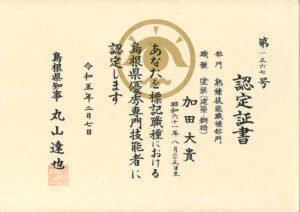 第一三六七号
認定証書
部門 熟練技能職種部門
職種 塗装(建築・鋼橋)
加田大貴
昭和六十一年八月二十五日生
あなたを標記職種における
島根県優秀専門技能者に
認定します
令和五年二月七日
島根県知事 丸山達也